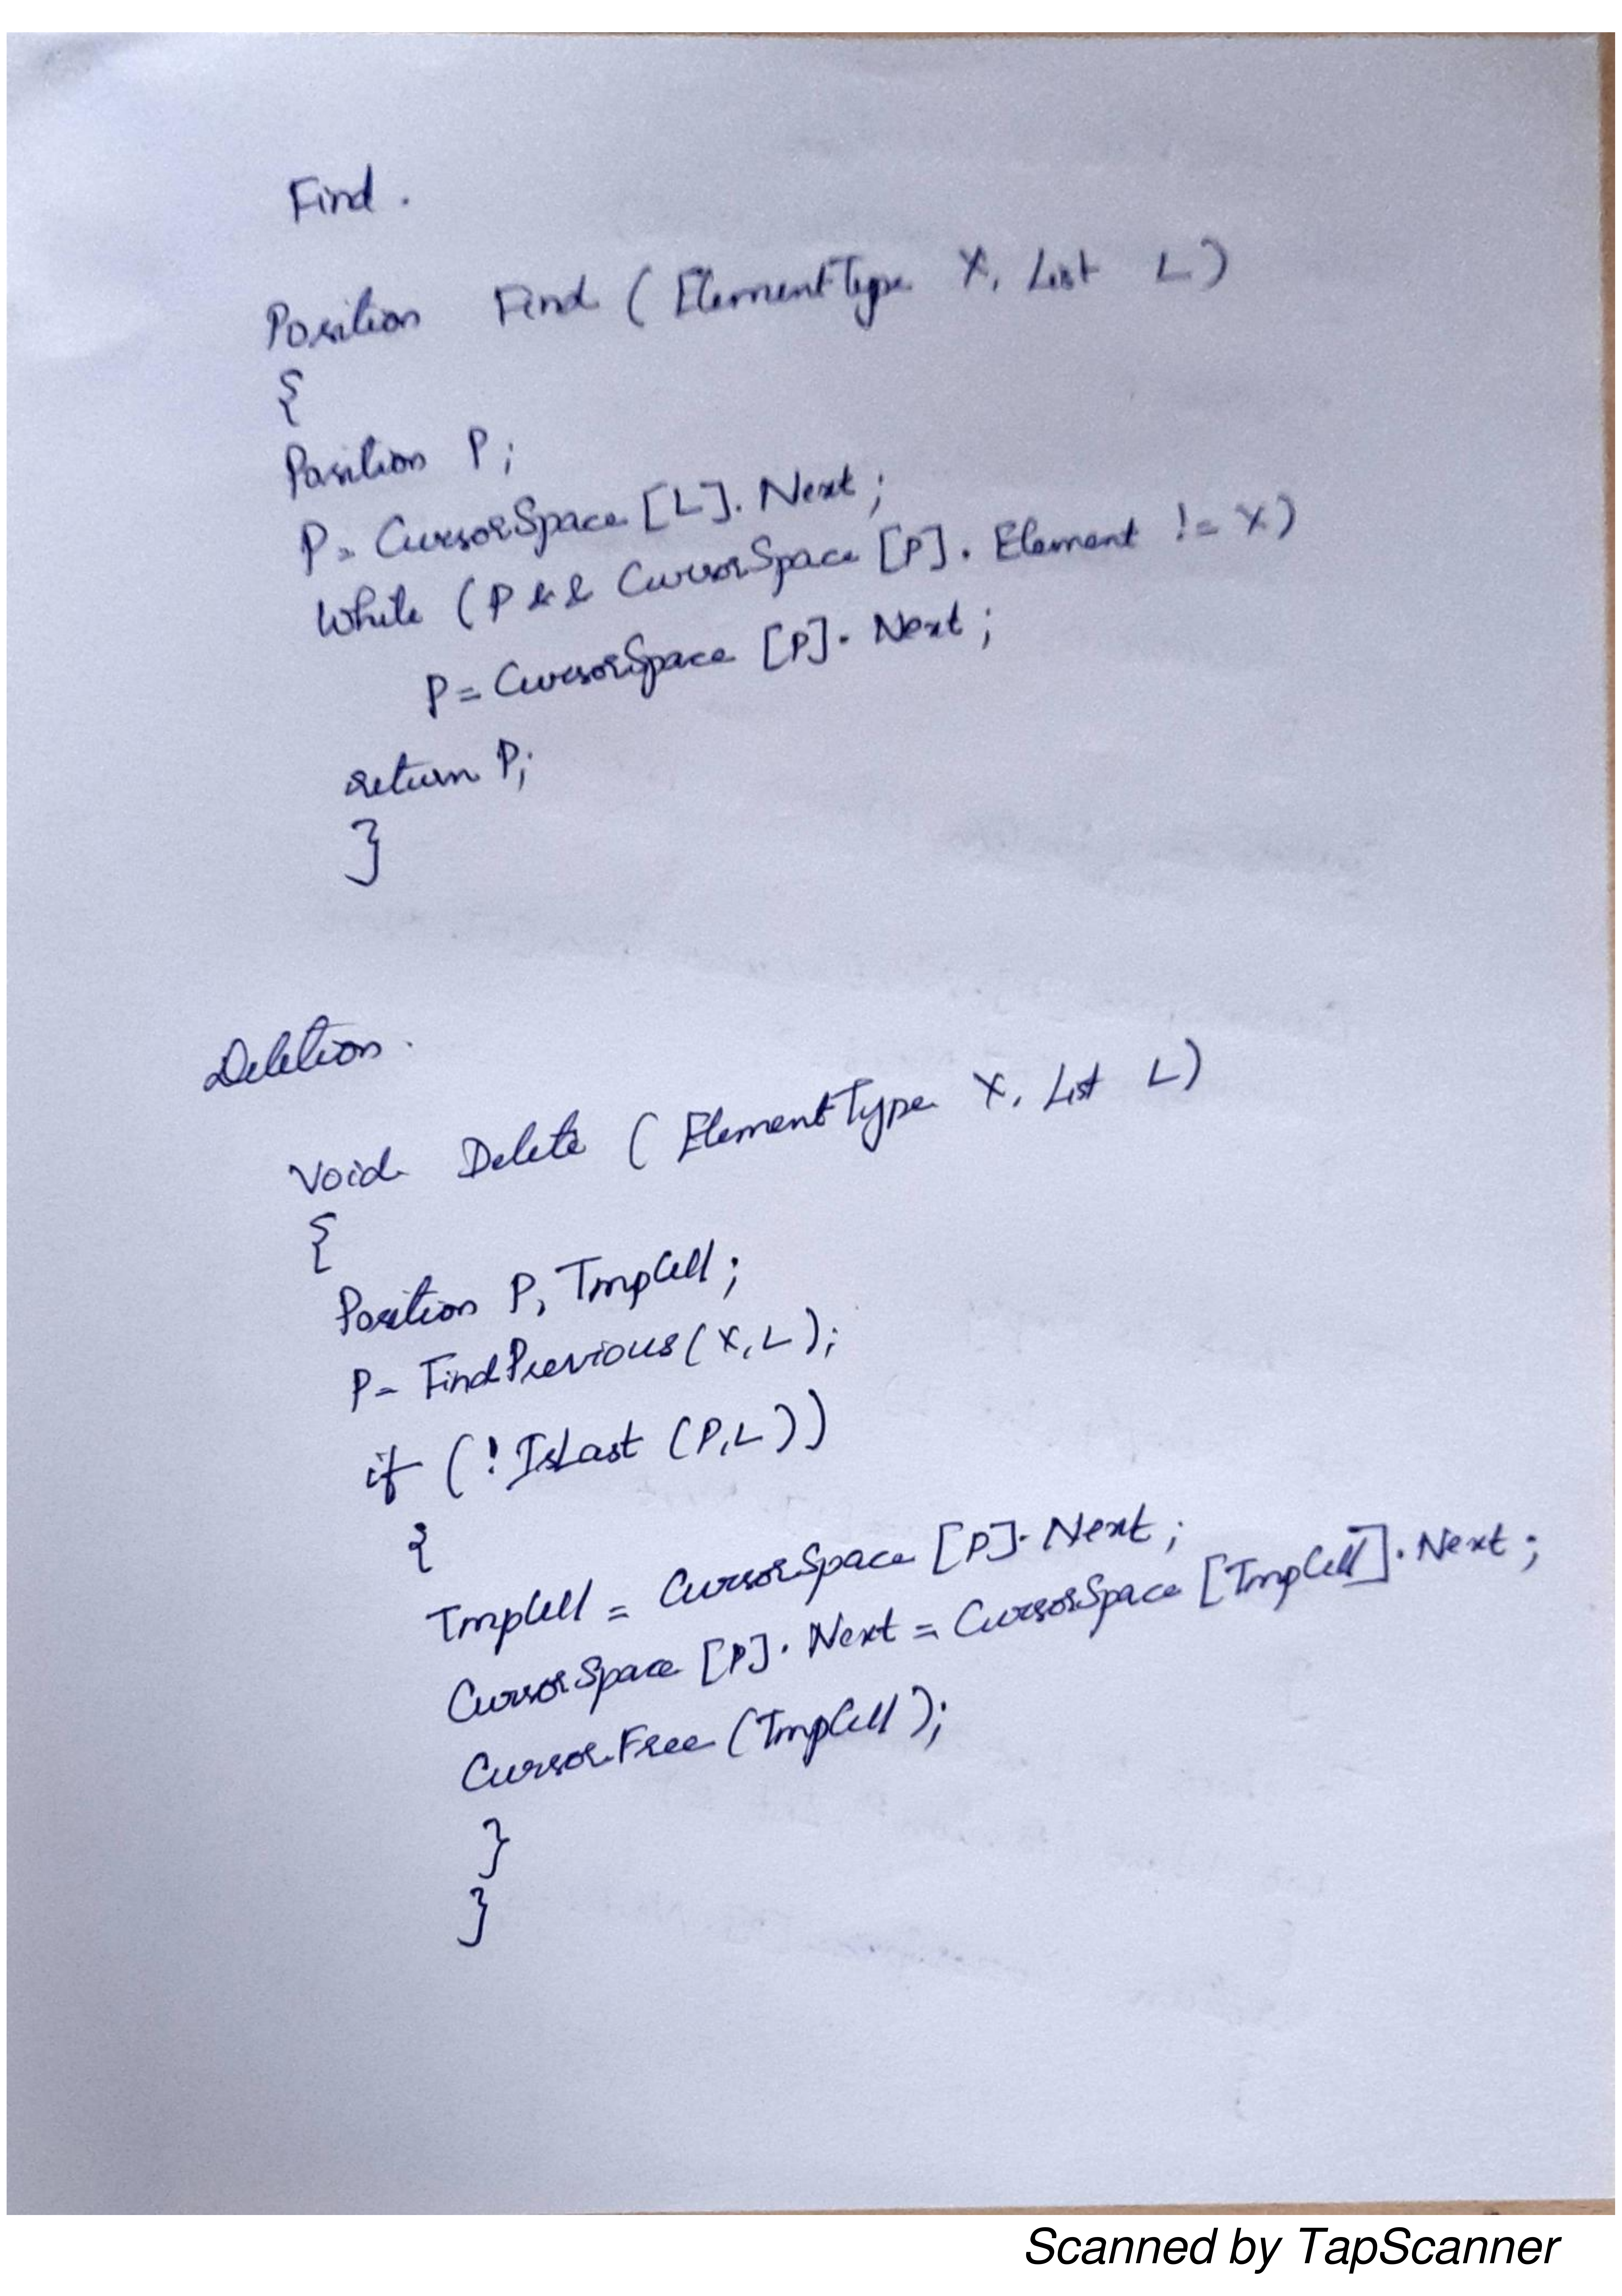 Find.
Position Find ( ElementType X, List L)
{
Position P;
P= CursorSpace [L]. Next;
While (P && CursorSpace [P]. Element != X)
P= CursorSpace [P]. Next;
return P;
}
Deletion.
Void Delete ( ElementType X, List L)
{
Position P, TmpCell;
P= FindPrevious(X,L);
if (! IsLast (P,L))
{
TmpCell = CursorSpace [P]. Next;
CursorSpace [P]. Next = CursorSpace [TmpCell]. Next;
CursorFree (TmpCell);
}
}
Scanned by TapScanner